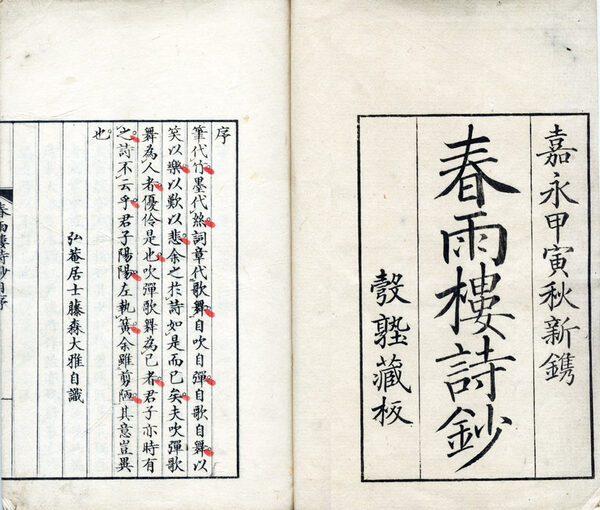 嘉永甲寅秋新鐫
春雨樓詩鈔
彀塾藏板
序
筆代竹墨代絲詞章代歌舞自吹自彈自歌自舞以
笑以樂以歎以悲余之扵詩如是而已矣夫吹彈歌
舞為人者優伶是也吹彈歌舞為己者君子亦時有
之詩不云乎君子陽陽左執簧余雖剪陋其意豈異
也
弘菴居士藤森大雅自識
春雨樓詩鈔自序